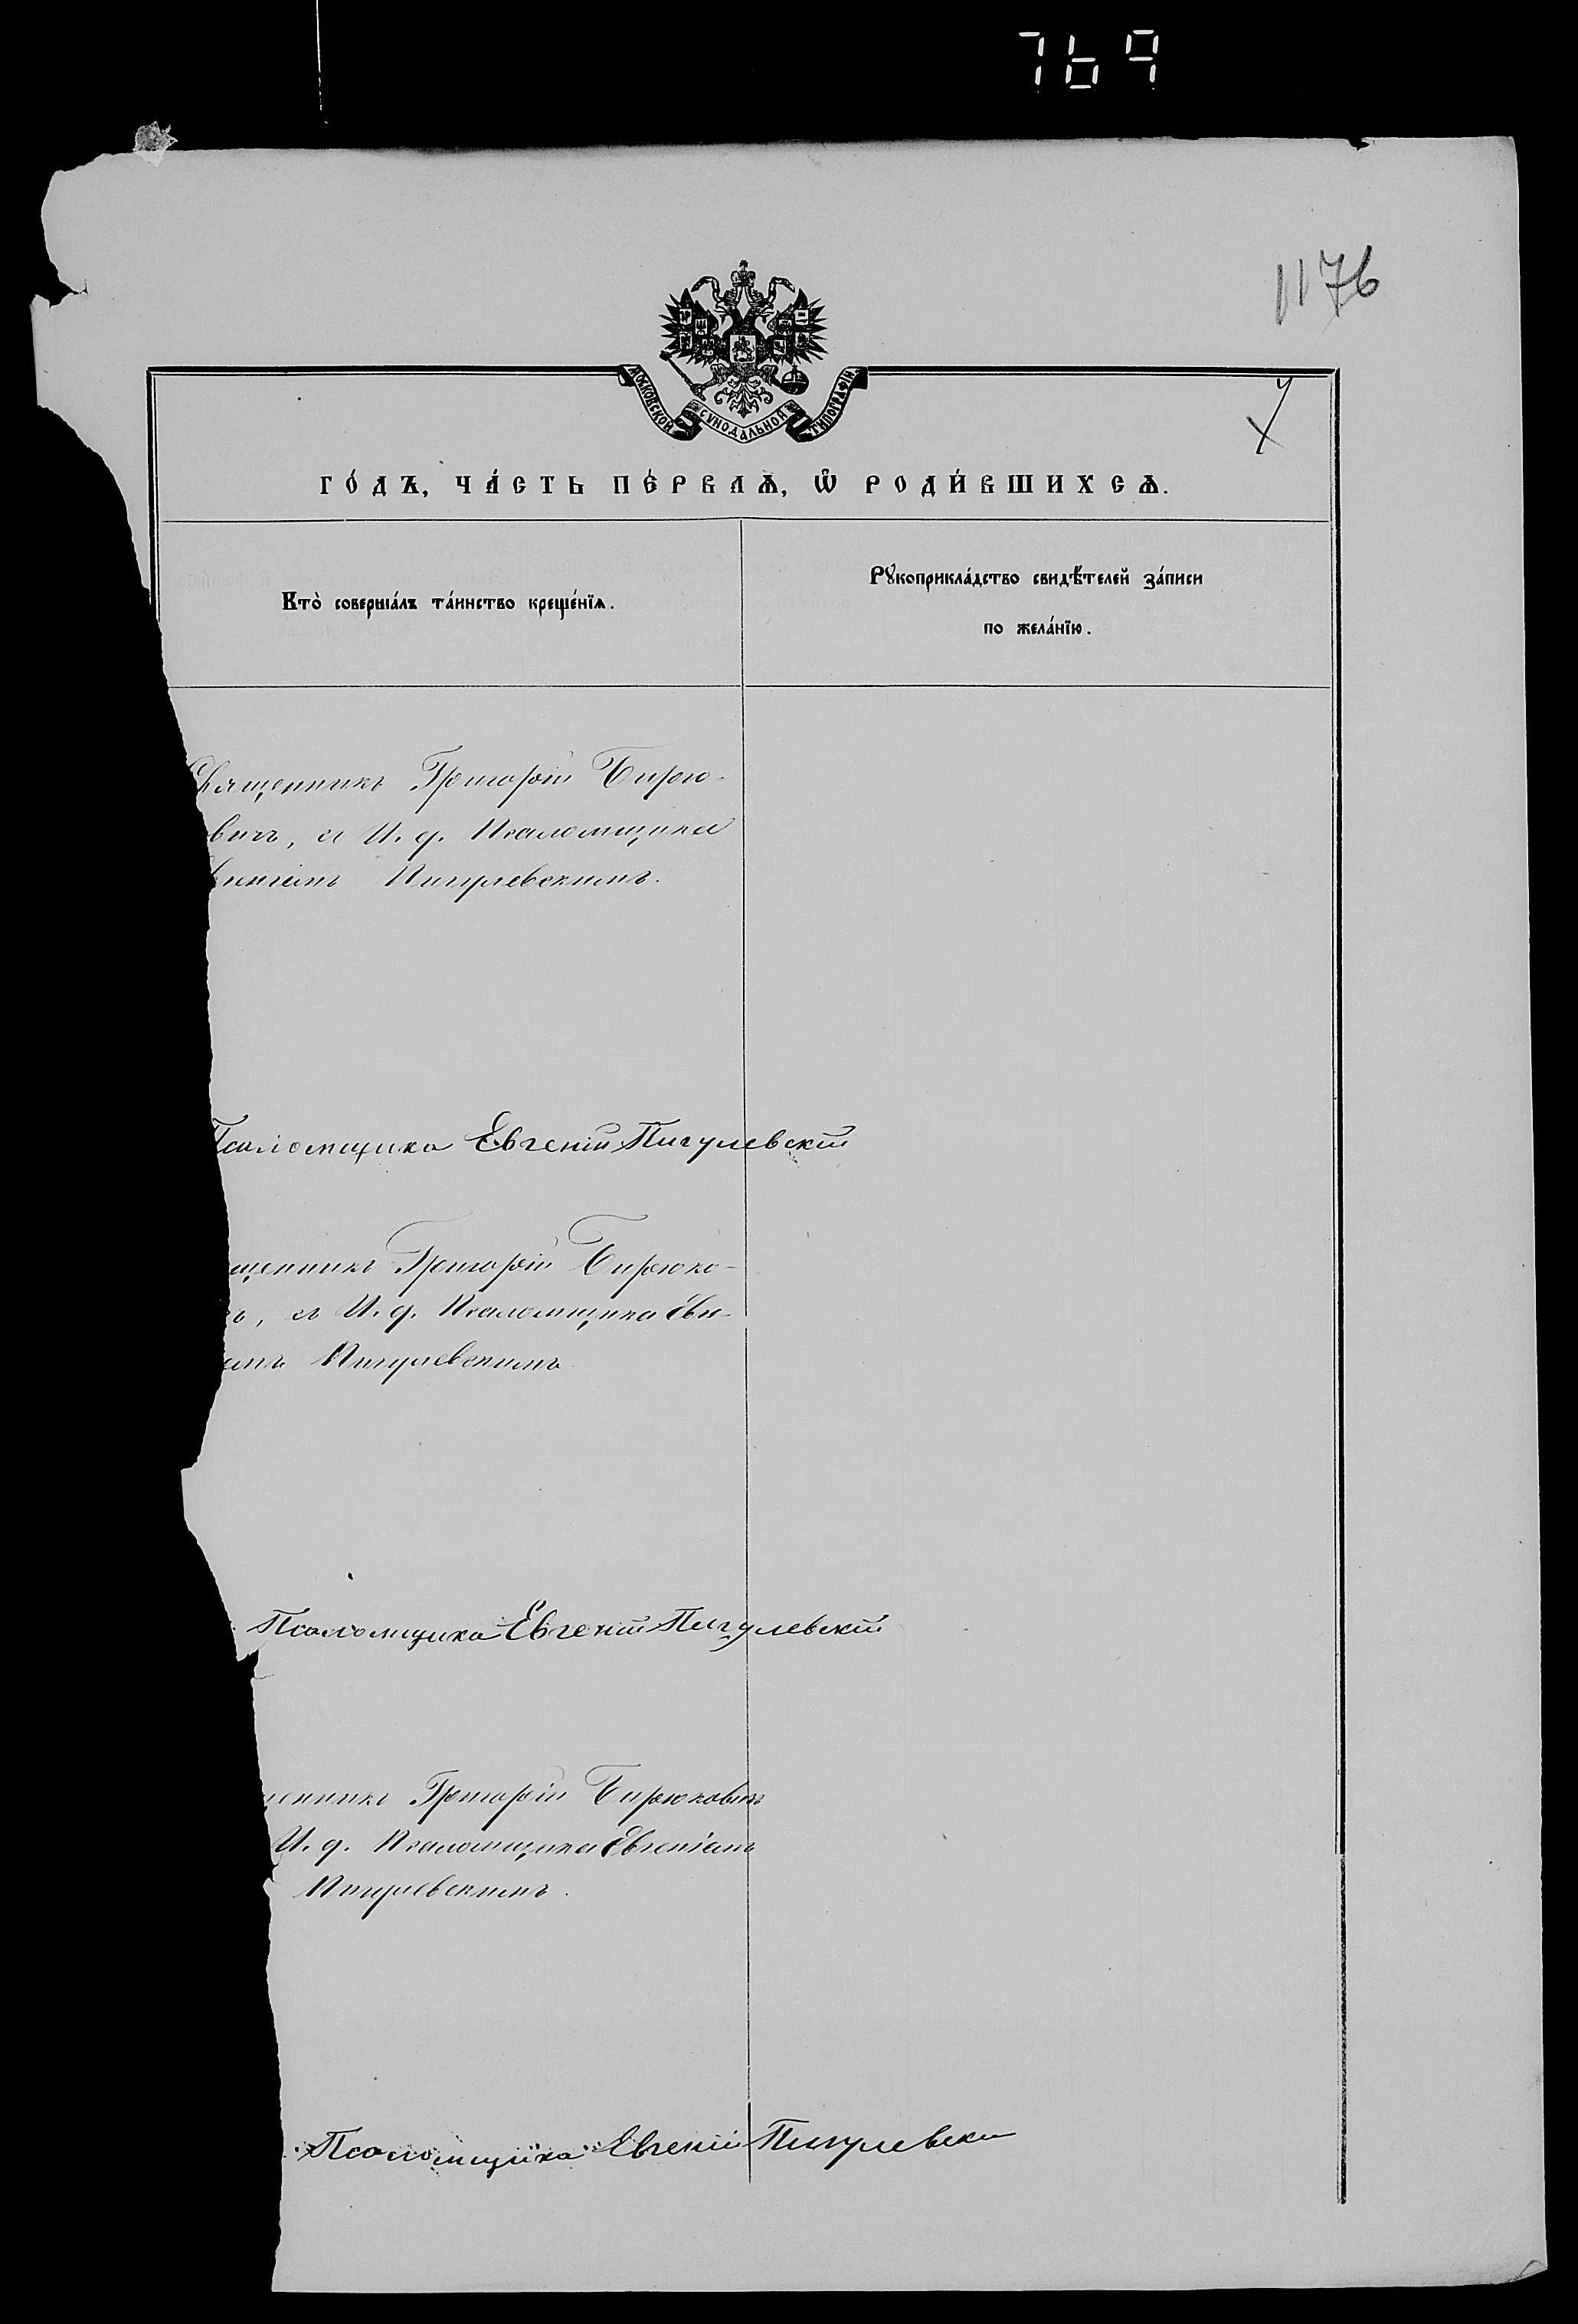 769
1176
МОСКОВСКОЙ СѴНОДАЛЬНОЙ ТИПОГРАФІИ.
ГО́ДЪ, ЧА́СТЬ ПЕ́РВАѦ, Ѡ҆ РОДИ́ВШИХСѦ.
Кто̀ соверша́лъ та́инство креще́нїѧ.
Рꙋкоприкла́дство свидѣ́телей за́писи
по жела́нїю.
Священникъ Григорій Бирю-
вичъ, съ И. д. Псаломщика
Пигулевскимъ.
Псаломщика Евгеній Пигулевскій
щенникъ Григорій Бирюко-
ъ, съ И. д. Псаломщика Евге-
емъ Пигулевскимъ
Псаломщика Евгеній Пигулевскій
щенникъ Григорій Бирюковичъ
И. д. Псаломщика Евгеніемъ
Пигулевскимъ.
Псаломщика Евгеній Пигулевски